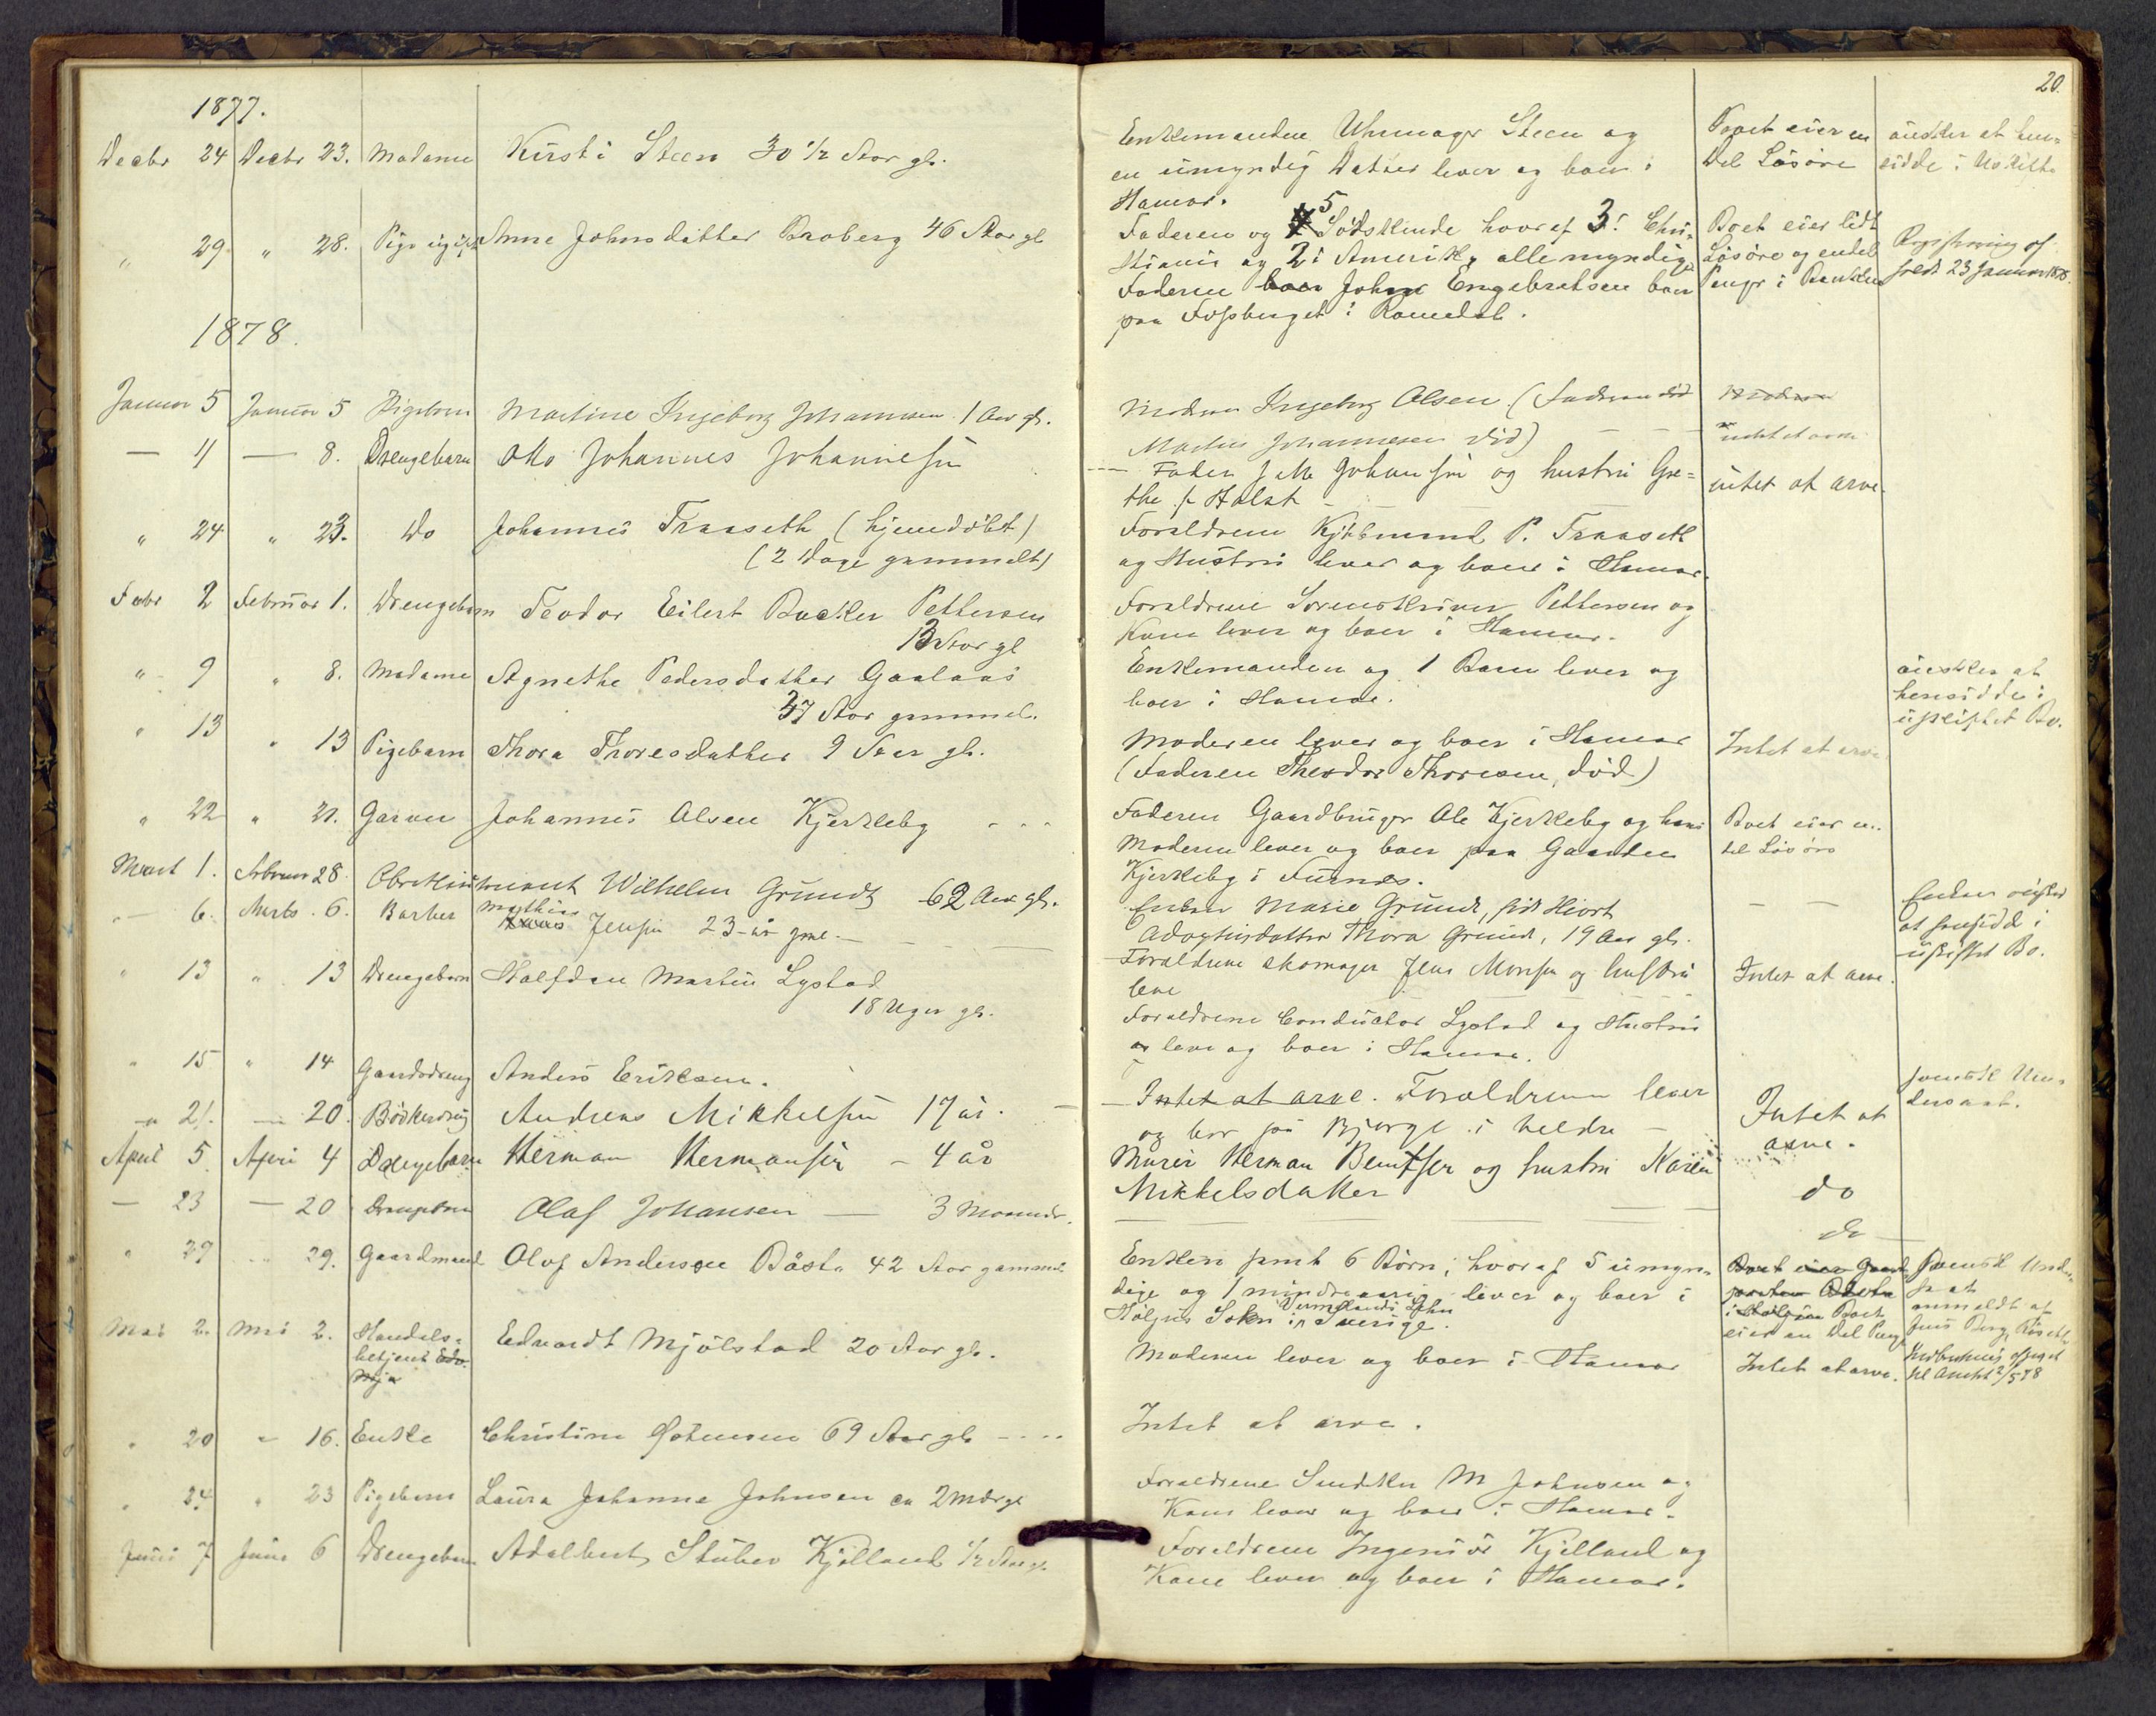 20.
1877.
Decbr 24 Decbr 23. Madame Kirsti Steen 30 1/2 Aar gl.
Enkemanden Uhrmager Steen og
en umyndig Datter lever og boer i
Hamar.
Boet eier en
Del Løsøre
ønsker at hen-
sidde i Uskifte
" 29 " 28. Pige ugift Anne Johnsdatter Broberg 46 Aar gl
Faderen og 5 Sødskende hvoraf 3 i Chri-
stiania og 2 i Amerika, alle myndige
Faderen boer John Engebretsen boer
paa Fossberget i Romedal.
Boet eier lidt
Løsøre og endel
Penge i Banken
Registrering af-
holdt 23 Januar 1878.
1878.
Januar 5 Januar 5 Pigebarn Martine Ingeborg Johannesen 1 Aar gl.
Moderen Ingeborg Olsen. (Faderen død
Martin Johannesen død)
Moderen
intet at arve
— 11 — 8. Drengebarn Otto Johannes Johannesen
Fader J. M. Johansen og hustru Gre-
the f. Holst
intet at arve.
" 24 " 23. Do Johannes Fraaseth (hjemdøbt)
(2 Dage gammelt)
Forældrene Kjøbmand P. Fraaseth
og Hustru lever og boer i Hamar.
Febr 2 Februar 1. Drengebarn Teodor Eilert Backer Pettersen
13 Aar gl
Forældrene Sorenskriver Pettersen og
Kone lever og boer i Hamar.
" 9 " 8. Madame Agnethe Pedersdatter Gaalaas
37 Aar gammel.
Enkemanden og 1 Barn lever og
boer i Hamar.
ønsker at
hensidde i
uskiftet Bo.
" 13 " 13 Pigebarn Thora Thoresdatter 9 Aar gl.
Moderen lever og boer i Hamar
(Faderen Theodor Thoresen, død)
Intet at arve
" 22 " 21. Garver Johannes Olsen Kjerkeby
Faderen Gaardbruger Ole Kjerkeby og hans
Moderen lever og boer paa Gaarden
Kjerkeby i Furnes.
Boet eier en
del Løsøre
Mart 1. Februar 28. Obristlieutenant Wilhelm Grundt 62 Aar gl.
Enken Marie Grundt, født Hiort
Adoptivdatter Thora Grundt, 19 Aar gl.
— —
Enken ønsker
at hensidde i
uskiftet Bo.
— 6. Marts 6. Barber Mathias Jensen 23 år gml.
Forældrene skomager Jens Monsen og hustru
leve
Intet at arve.
" 13 " 13 Drengebarn Halfdan Martin Lystad
18 Uger gl.
Forældrene Conductør Lystad og Hustru
leve og boer i Hamar.
" 15 " 14 Gaardsdreng Anders Eriksen.
Intet at arve.
svensk Un-
dersaat.
— 21. — 20. Bødkerdreng Andreas Mikkelsen 17 år.
Forældrene lever
og bor på Bjørge i Veldre
Intet at
arve.
April 5. April 4 Drengebarn Herman Hermansen — 4 år
Murer Herman Berntsen og hustru Karen
Mikkelsdatter
do
— 23 — 20 Drengebarn Olaf Johansen — 3 Maaneder.
do
" 29 " 29. Gaardmand Olof Andersson Båsta 42 Aar gammel
Enken samt 6 Børn, hvoraf 5 umyn-
dige og 1 mindreaarig lever og boer i
Holjes Sokn i Vermlands Lehn Sverige.
Boet eier Gaard
parten Båsta
i Holjes Boet
eier en Del Penge
Svensk Under-
saat
anmeldt af
Jens Berg, Røiseth
Indberetning afsendt
til Amtet 2/5 78
Mai 2. Mai 2. Handels-
betjent Edv.
Mjø
Edvardt Mjølstad 20 Aar gl.
Moderen lever og boer i Hamar
Intet at arve.
" 20 " 16. Enke Christine 69 Aar gl
Intet at arve.
" 24 " 23 Pigebarn Laura Johanne Johnsen ca 2 Mdr gl
Forældrene Snedker M Johnsen og
Kone lever og boer i Hamar.
Juni 7 Juni 6 Drengebarn Adalbert Stüber Kjelland 1/2 Aar gl.
Forældrene Ingeniør Kjelland og
Kone lever og boer i Hamar.